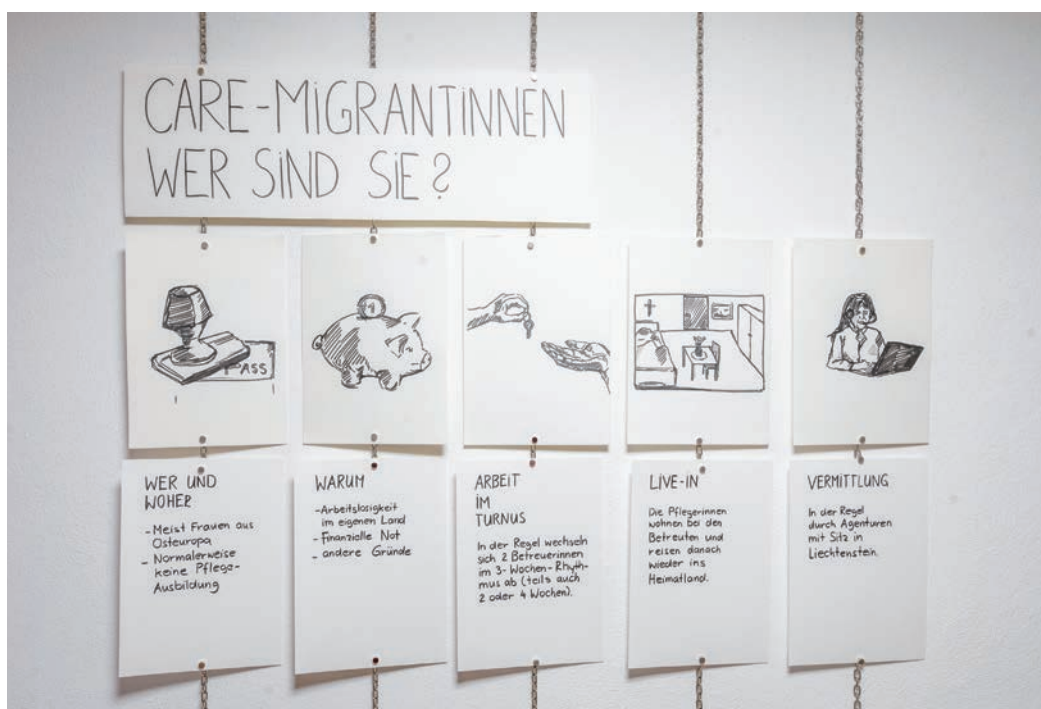 CARE-MiGRANTiNNEN
WER SiND SiE?
PASS
WER UND
WOHER
- Meist Frauen aus
Osteuropa
- Normalerweise
keine Pflege-
Ausbildung
WARUM
- Arbeitslosigkeit
im eigenen Land
- Finanzielle Not
- andere Gründe
ARBEiT
iM
TURNUS
In der Regel wechseln
sich 2 Betreuerinnen
im 3-Wochen-Rhyth-
mus ab (teils auch
2 oder 4 Wochen).
LiVE-iN
Die Pflegerinnen
wohnen bei den
Betreuten und
reisen danach
wieder ins
Heimatland.
VERMiTTLUNG
In der Regel
durch Agenturen
mit Sitz in
Liechtenstein.